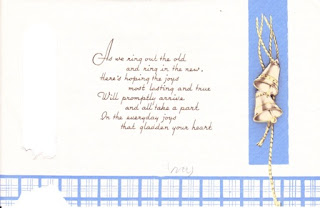 As we ring out the old
and ring in the new,
Here's hoping the joys
most lasting and true
Will promptly arrive
and all take a part
In the everyday joys
that gladden your heart